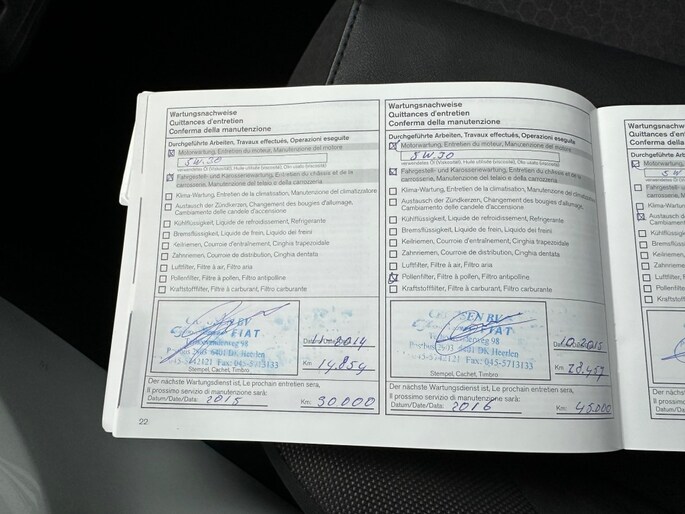 Wartungsnachweise
Quittances d'entretien
Conferma della manutenzione
Durchgeführte Arbeiten, Travaux effectués, Operazioni eseguite
Motorwartung, Entretien du moteur, Manutenzione del motore
5W30
Fahrgestell- und Karosseriewartung, Entretien du châssis et de la
carrosserie, Manutenzione del telaio e della carrozzeria
Klima-Wartung, Entretien de la climatisation, Manutenzione del climatizzatore
Austausch der Zündkerzen, Changement des bougies d'allumage,
Cambiamento delle candele d'accensione
Kühlflüssigkeit, Liquide de refroidissement, Refrigerante
Bremsflüssigkeit, Liquide de frein, Liquido dei freini
Keilriemen, Courroie d'entraînement, Cinghia trapezoidale
Zahnriemen, Courroie de distribution, Cinghia dentata
Luftfilter, Filtre à air, Filtro aria
Pollenfilter, Filtre à pollen, Filtro antipolline
Kraftstofffilter, Filtre à carburant, Filtro carburante
FIAT
98
6401 DK Heerlen
Fax: 045-5713133
2014
Km: 14.854
Stempel, Cachet, Timbro
Der nächste Wartungsdienst ist, Le prochain entretien sera,
Il prossimo servizio di manutenzione sarà:
Datum/Date/Data: 2015 Km: 30.000
22
Wartungsnachweise
Quittances d'entretien
Conferma della manutenzione
Durchgeführte Arbeiten, Travaux effectués, Operazioni eseguite
Motorwartung, Entretien du moteur, Manutenzione del motore
5W30
verwendetes Öl (Viskosität), Huile utilisée (viscosité), Olio usato (viscosità)
Fahrgestell- und Karosseriewartung, Entretien du châssis et de la
carrosserie, Manutenzione del telaio e della carrozzeria
Klima-Wartung, Entretien de la climatisation, Manutenzione del climatizzatore
Austausch der Zündkerzen, Changement des bougies d'allumage,
Cambiamento delle candele d'accensione
Kühlflüssigkeit, Liquide de refroidissement, Refrigerante
Bremsflüssigkeit, Liquide de frein, Liquido dei freini
Keilriemen, Courroie d'entraînement, Cinghia trapezoidale
Zahnriemen, Courroie de distribution, Cinghia dentata
Luftfilter, Filtre à air, Filtro aria
Pollenfilter, Filtre à pollen, Filtro antipolline
Kraftstofffilter, Filtre à carburant, Filtro carburante
BV
FIAT
98
6401 DK Heerlen
Fax: 045-5713133
2015
Km:
Stempel, Cachet, Timbro
Der nächste Wartungsdienst ist, Le prochain entretien sera,
Il prossimo servizio di manutenzione sarà:
Datum/Date/Data: 2016 Km: 45.000
Quittances d'e
Conferma della
Durchgeführte Ar
Motorwartung,
Fahrgestell-
carrosserie,
Klima-Wartu
Austausch d
Cambiament
Kühlflüssigk
Bremsflüssi
Keilriemen,
Zahnriemen
Luftfilter,
Pollenfilter
Kraftstofff
Der nächste
Il prossimo
Datum/Date